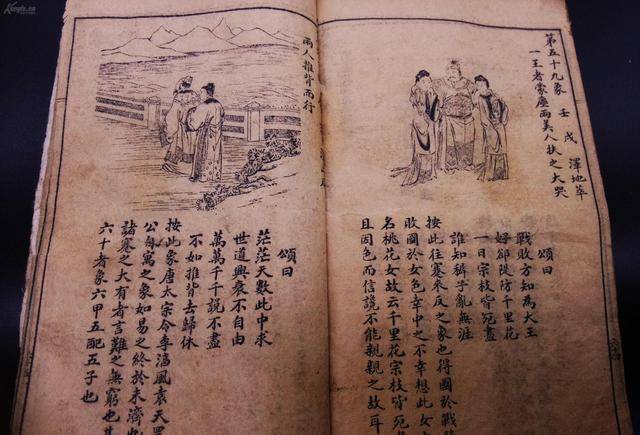 第五十九象 壬戌 澤地萃
一王者蒙塵兩美人扶之大哭
頌曰
戰敗方知為大王
好卻陡防千里花
一日宗枝皆宛盡
誰知褲子亂無涯
按此往蹇來反之象也得國於戰
敗國於女色幸中之不幸想此女
名桃花女故云千里花宗枝皆宛
且因色而信讒不能親親之故耳
兩人推背而行
頌曰
茫茫天數此中求
世道興衰不自由
萬萬千千說不盡
不如推背去歸休
按此象唐太宗令李淳風袁天罡
公自寓之象如易之終於未濟也
諸蹇之大有者言難之無窮也其
六十者象六甲五配五子也
Kongfz.cn